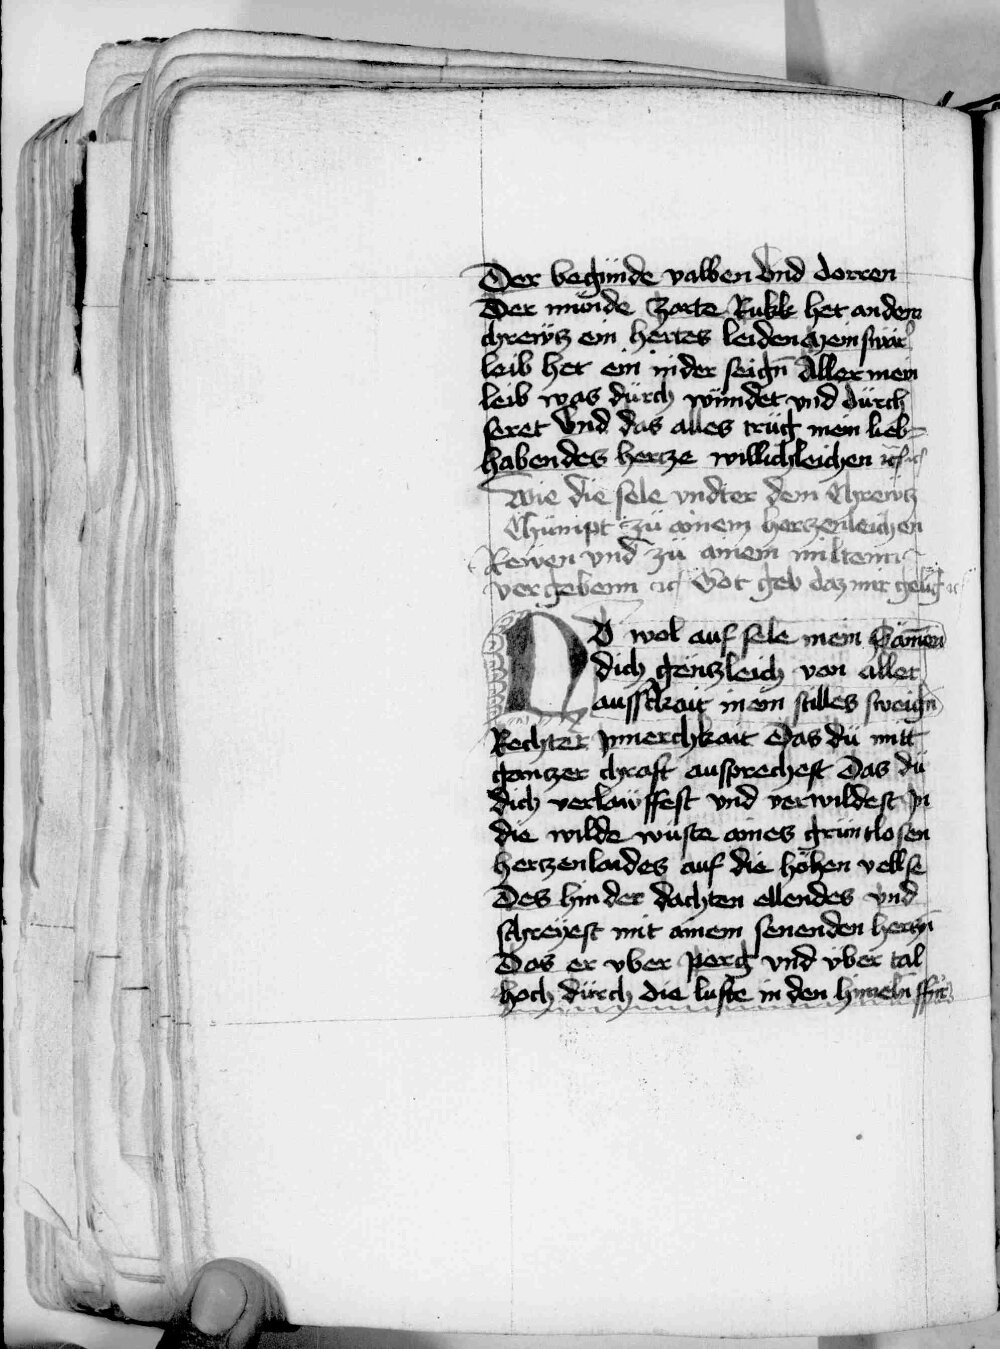 Der begünde valben vnd dorren
Der münde zarte Rukk het an dem
chrewtz ein hertes leinen mein swär
leib het ein nider seign Aller mein
leib was dürch wündet vnd dürch
seret Vnd das alles trüg mein lieb
habendes hercze willichleichen
Wie die sele vndter dem Chrewtz
Chümpt zü ainem herczenleichen
Rewen vnd zü ainem miltem
vergebenn Got geb daz mir geling
NV wol auf sele mein Samen
dich gentzleich von aller
ausserkait in ein stilles sweign
Rechter ynnerchkait Das dü mitt
gantzer chraft ausprechest Das dü
dich verlawffest vnd verwildest in
die wilde wüste aines grüntlosen
hertzenlaides auf die höhen vellse
Des hinder dachten ellendes vnd
schreyest mit ainem senenden hertzn
Das er vber perg vnd vber tal
hoch dürch die lufte in den himeln